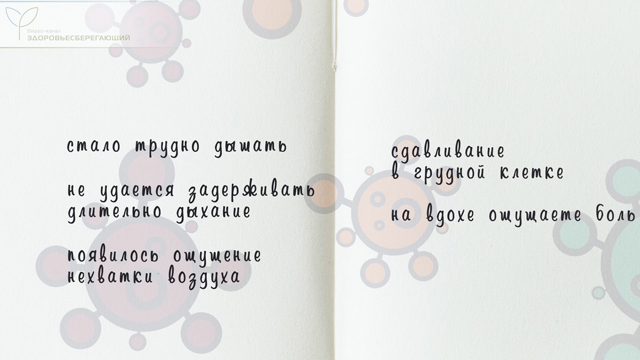 Видео-канал
ЗДОРОВЬЕСБЕРЕГАЮЩИЙ
стало трудно дышать
не удается задерживать
длительно дыхание
появилось ощущение
нехватки воздуха
сдавливание
в грудной клетке
на вдохе ощущаете боль